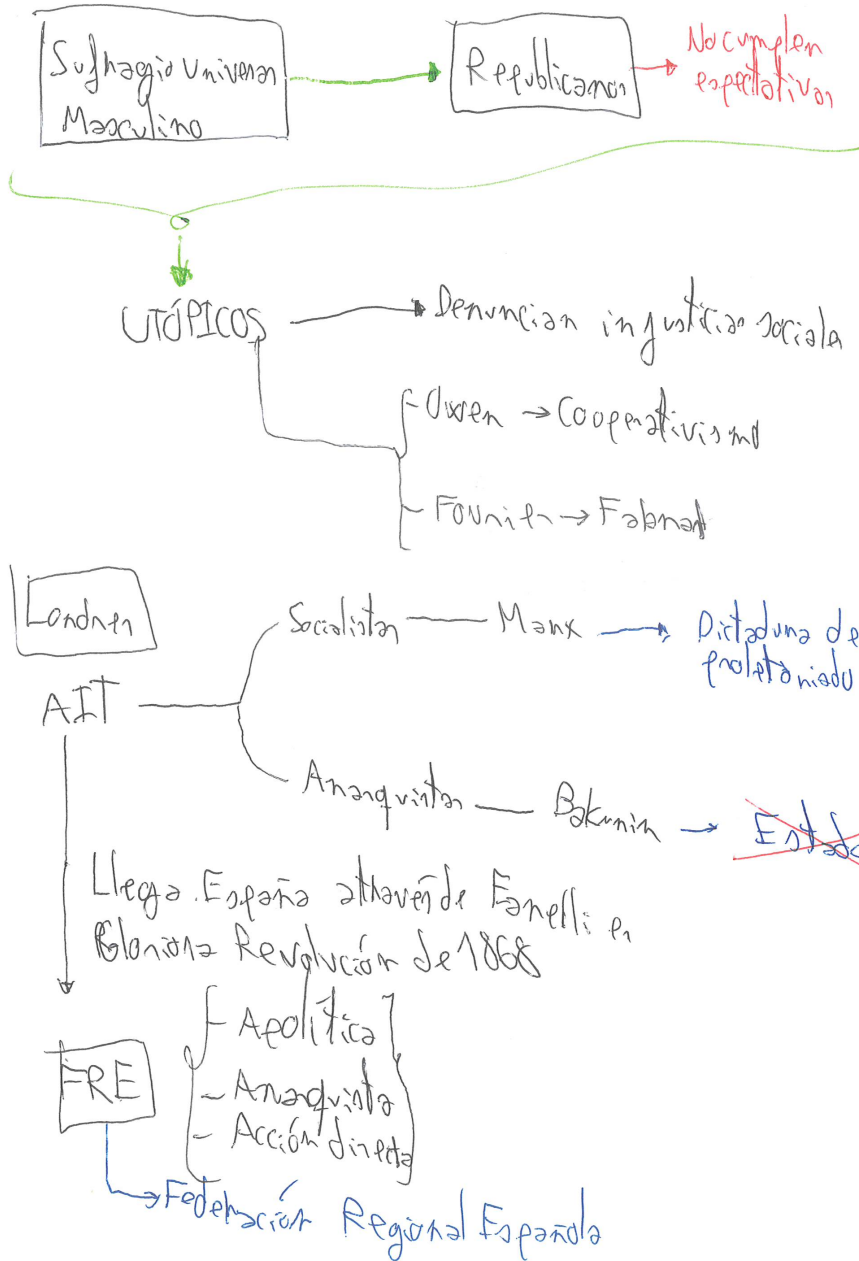 Sufragio Univeras
Masculino
Republicanos
No cumplen
espectativas
UTÓPICOS
Denuncian injusticias sociales
- Owen → Cooperativismo
- Fourier →
Londres
AIT
Socialistas — Marx → Dictadura de
proletariado
Anarquistas — Bakunin → Estado
Llega España através de Fanelli en
Gloriosa Revolución de 1868
FRE
- Apolítica
- Anarquista
- Acción directa
→ Federación Regional Española